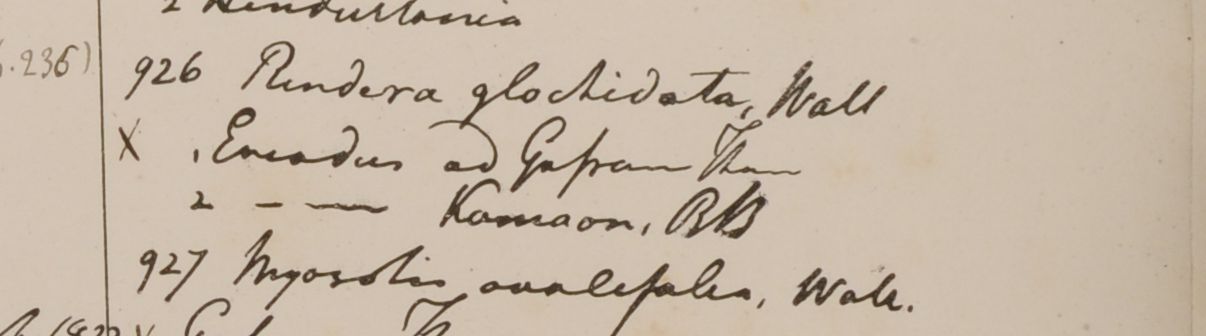 2 Hindustania
.236)
926 Rindera glochidata, Wall
X 1 Emodus ad Gosain Than
2 - — Kamaon, RB
927 Myosotis ovalifolia, Wall.